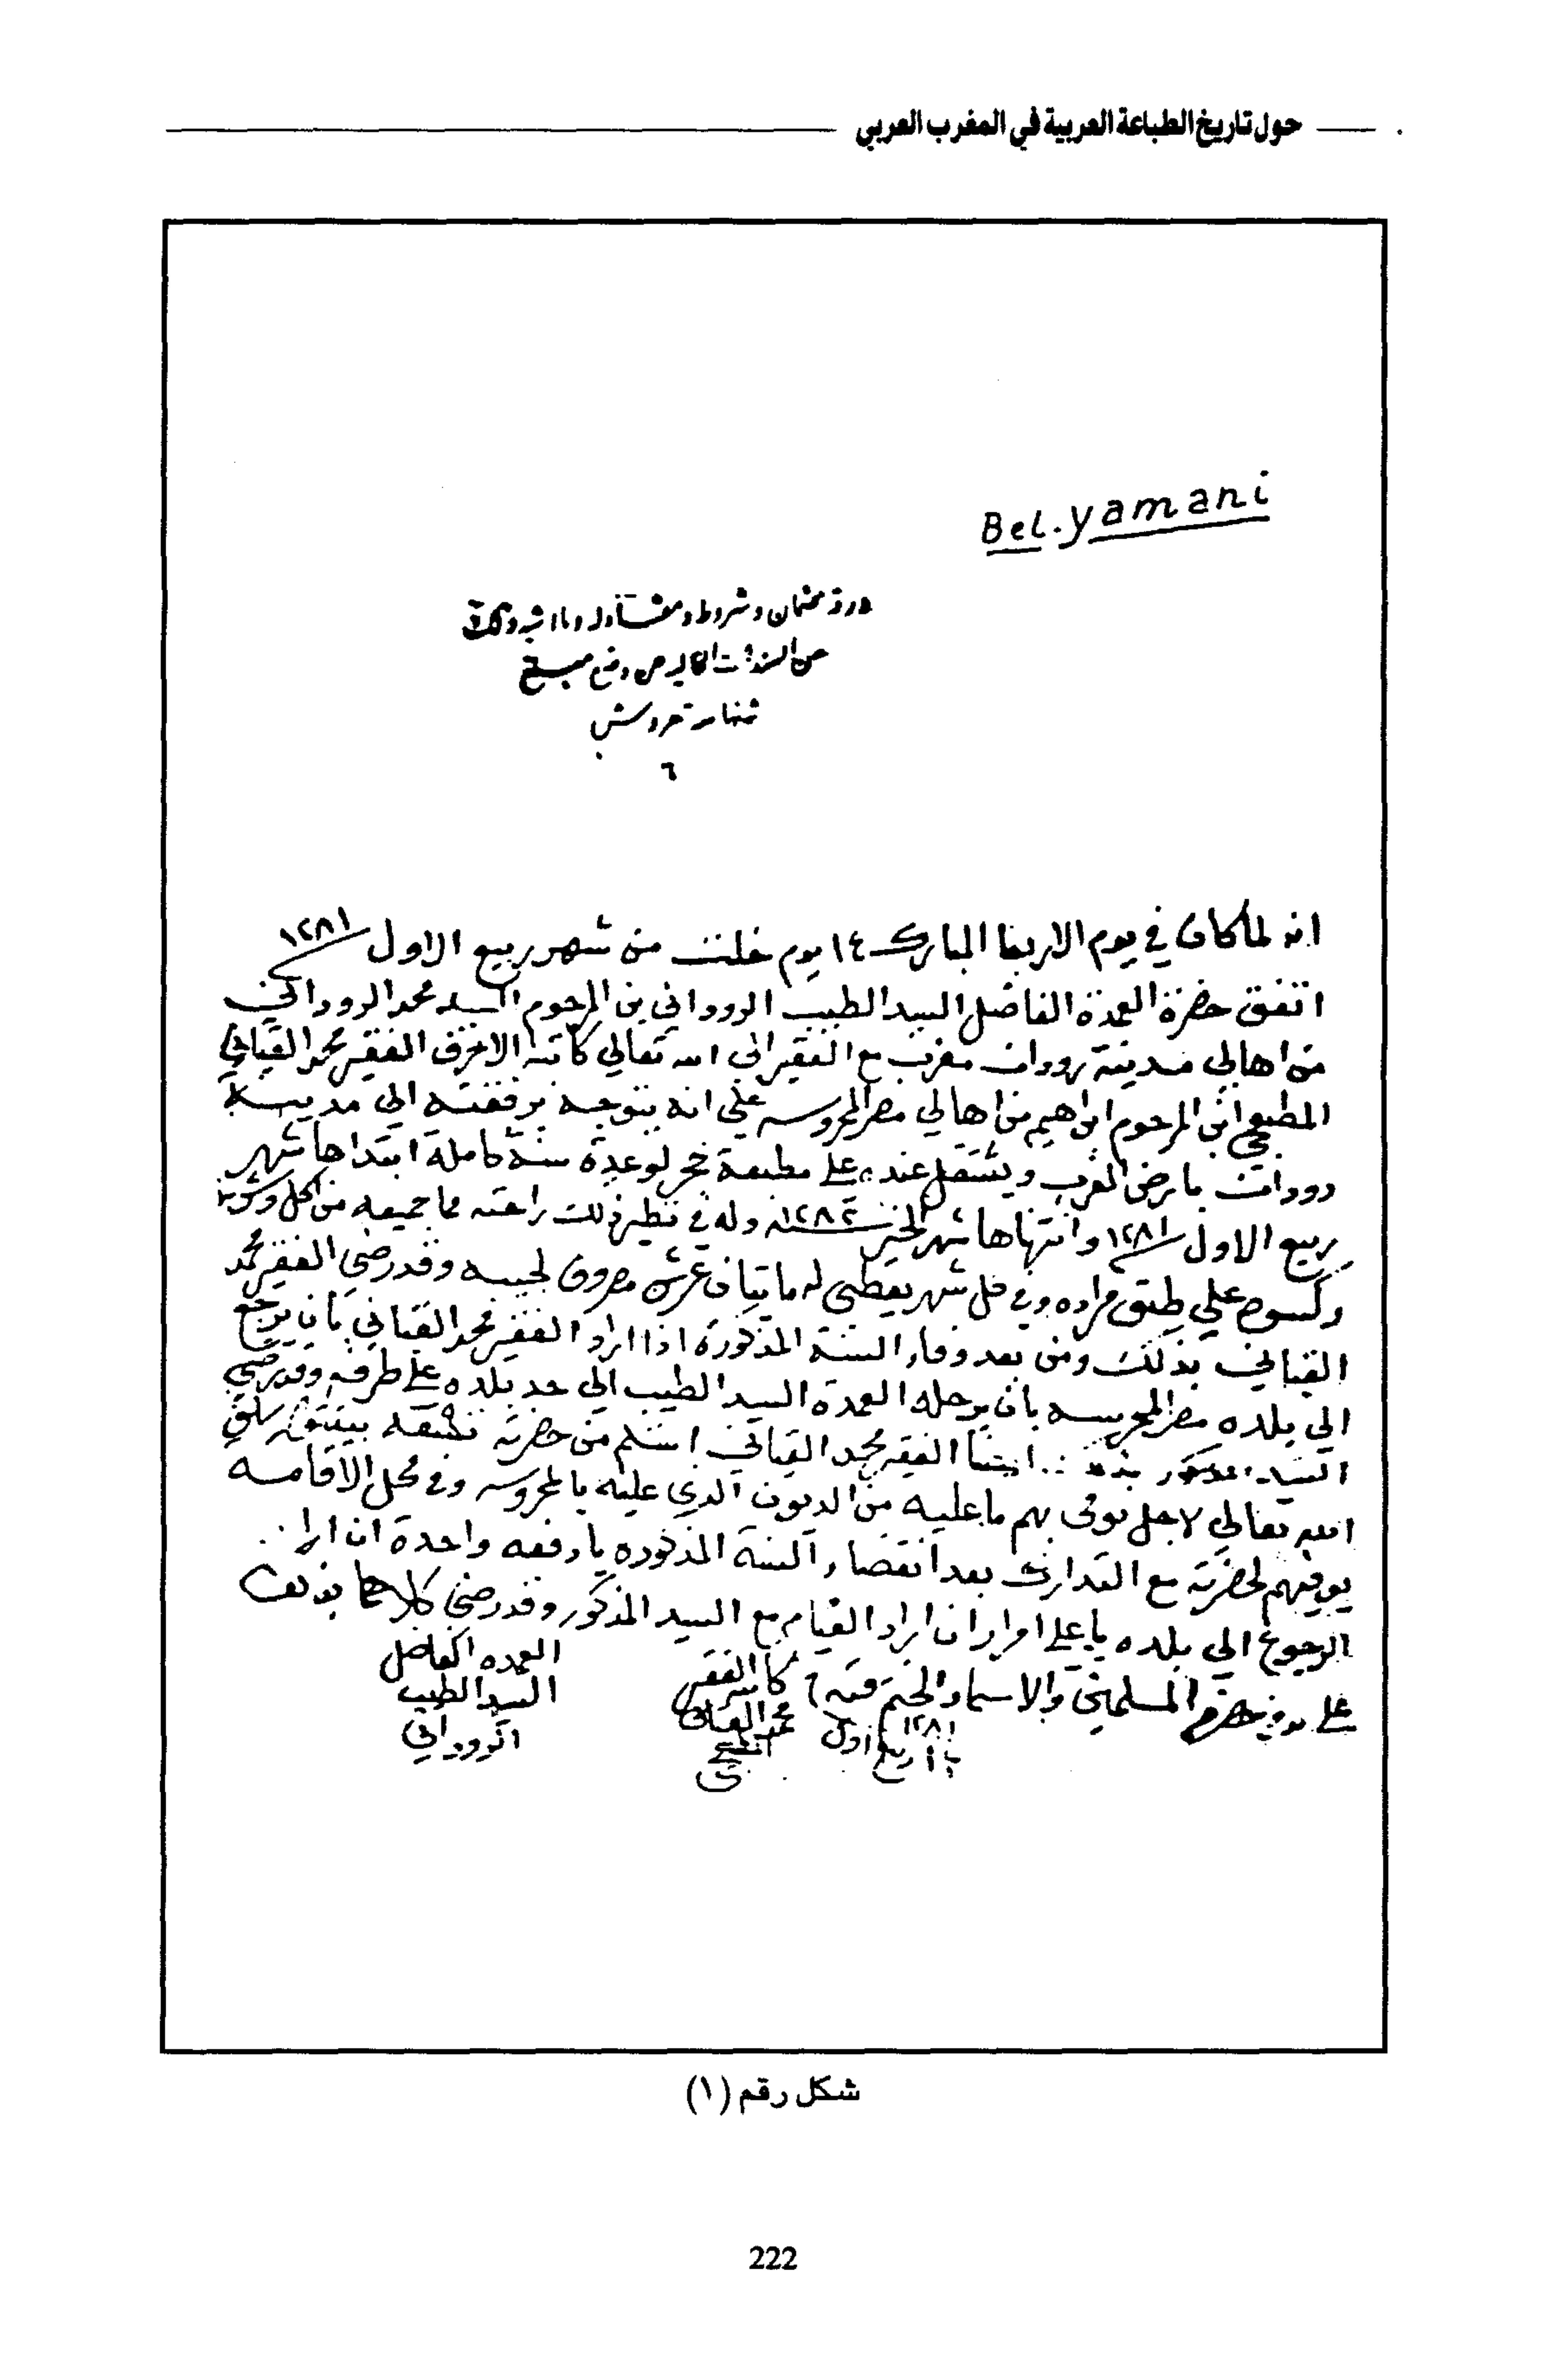 حول تاريخ الطباعة العربية في المغرب العربي
Bel.yamani
وشروط
غروش
٦
انه لما كان في يوم الاربعا المبارك ١٤ يوم خلت من شهر ربيع الاول ١٢٨١
اتفق حضرة العمدة الفاضل السيد الطيب الروداني بن المرحوم السيد محمد الروداني
من اهالي مدينة رودان مغرب مع الفقير الى الله تعالي كاتبه الاحرف الفقير محمد القباني
المطبعجي ابن المرحوم ابراهيم من اهالي مصر المحروسه علي انه يتوجه برفقته الي مدينة
رودان بارض الغرب ويشتغل عنده علي مطبعة حجر لوعدة سنة كاملة ابتداها شهر
ربيع الاول ١٢٨١ وانتهاها شهر الخير سنة ١٢٨٢ وله في نظير ذلك راحته مما جميعه من اكل وشرب
وكسوه علي طبق مراده وفي كل شهر يعطي له مايتان غرش مصروف لجيبه وقد رضي الفقير محمد
القباني بذلك ومن بعد وفاء السنة المذكورة اذا اراد الفقير محمد القباني بان يرجع
الي بلده مصر المحروسه بان يرحله العمدة السيد الطيب الي حد بلده علي طرفه وقد رضي
السيد المذكور بذلك ايضا الفقير محمد القباني استلم من حضرته
الله تعالي لاجل يوفى بهم ما عليه من الديون الذي عليه بالمحروسه وفي محل الاقامه
يوفيهم لحضرته مع التدارك بعد انقضاء السنة المذكوره يا دفعه واحدة ان اراد
الرجوع الي بلده يا علي امرار ان اراد القيام مع السيد المذكور وقد رضي كلاهما بذلك
علي يد من حضر المسلمين والاسماء والختم فيه
كاتبه الفقير محمد القباني المطبعجي
العمده الفاضل
السيد الطيب
الروداني
١٢٨١
شكل رقم (١)
222